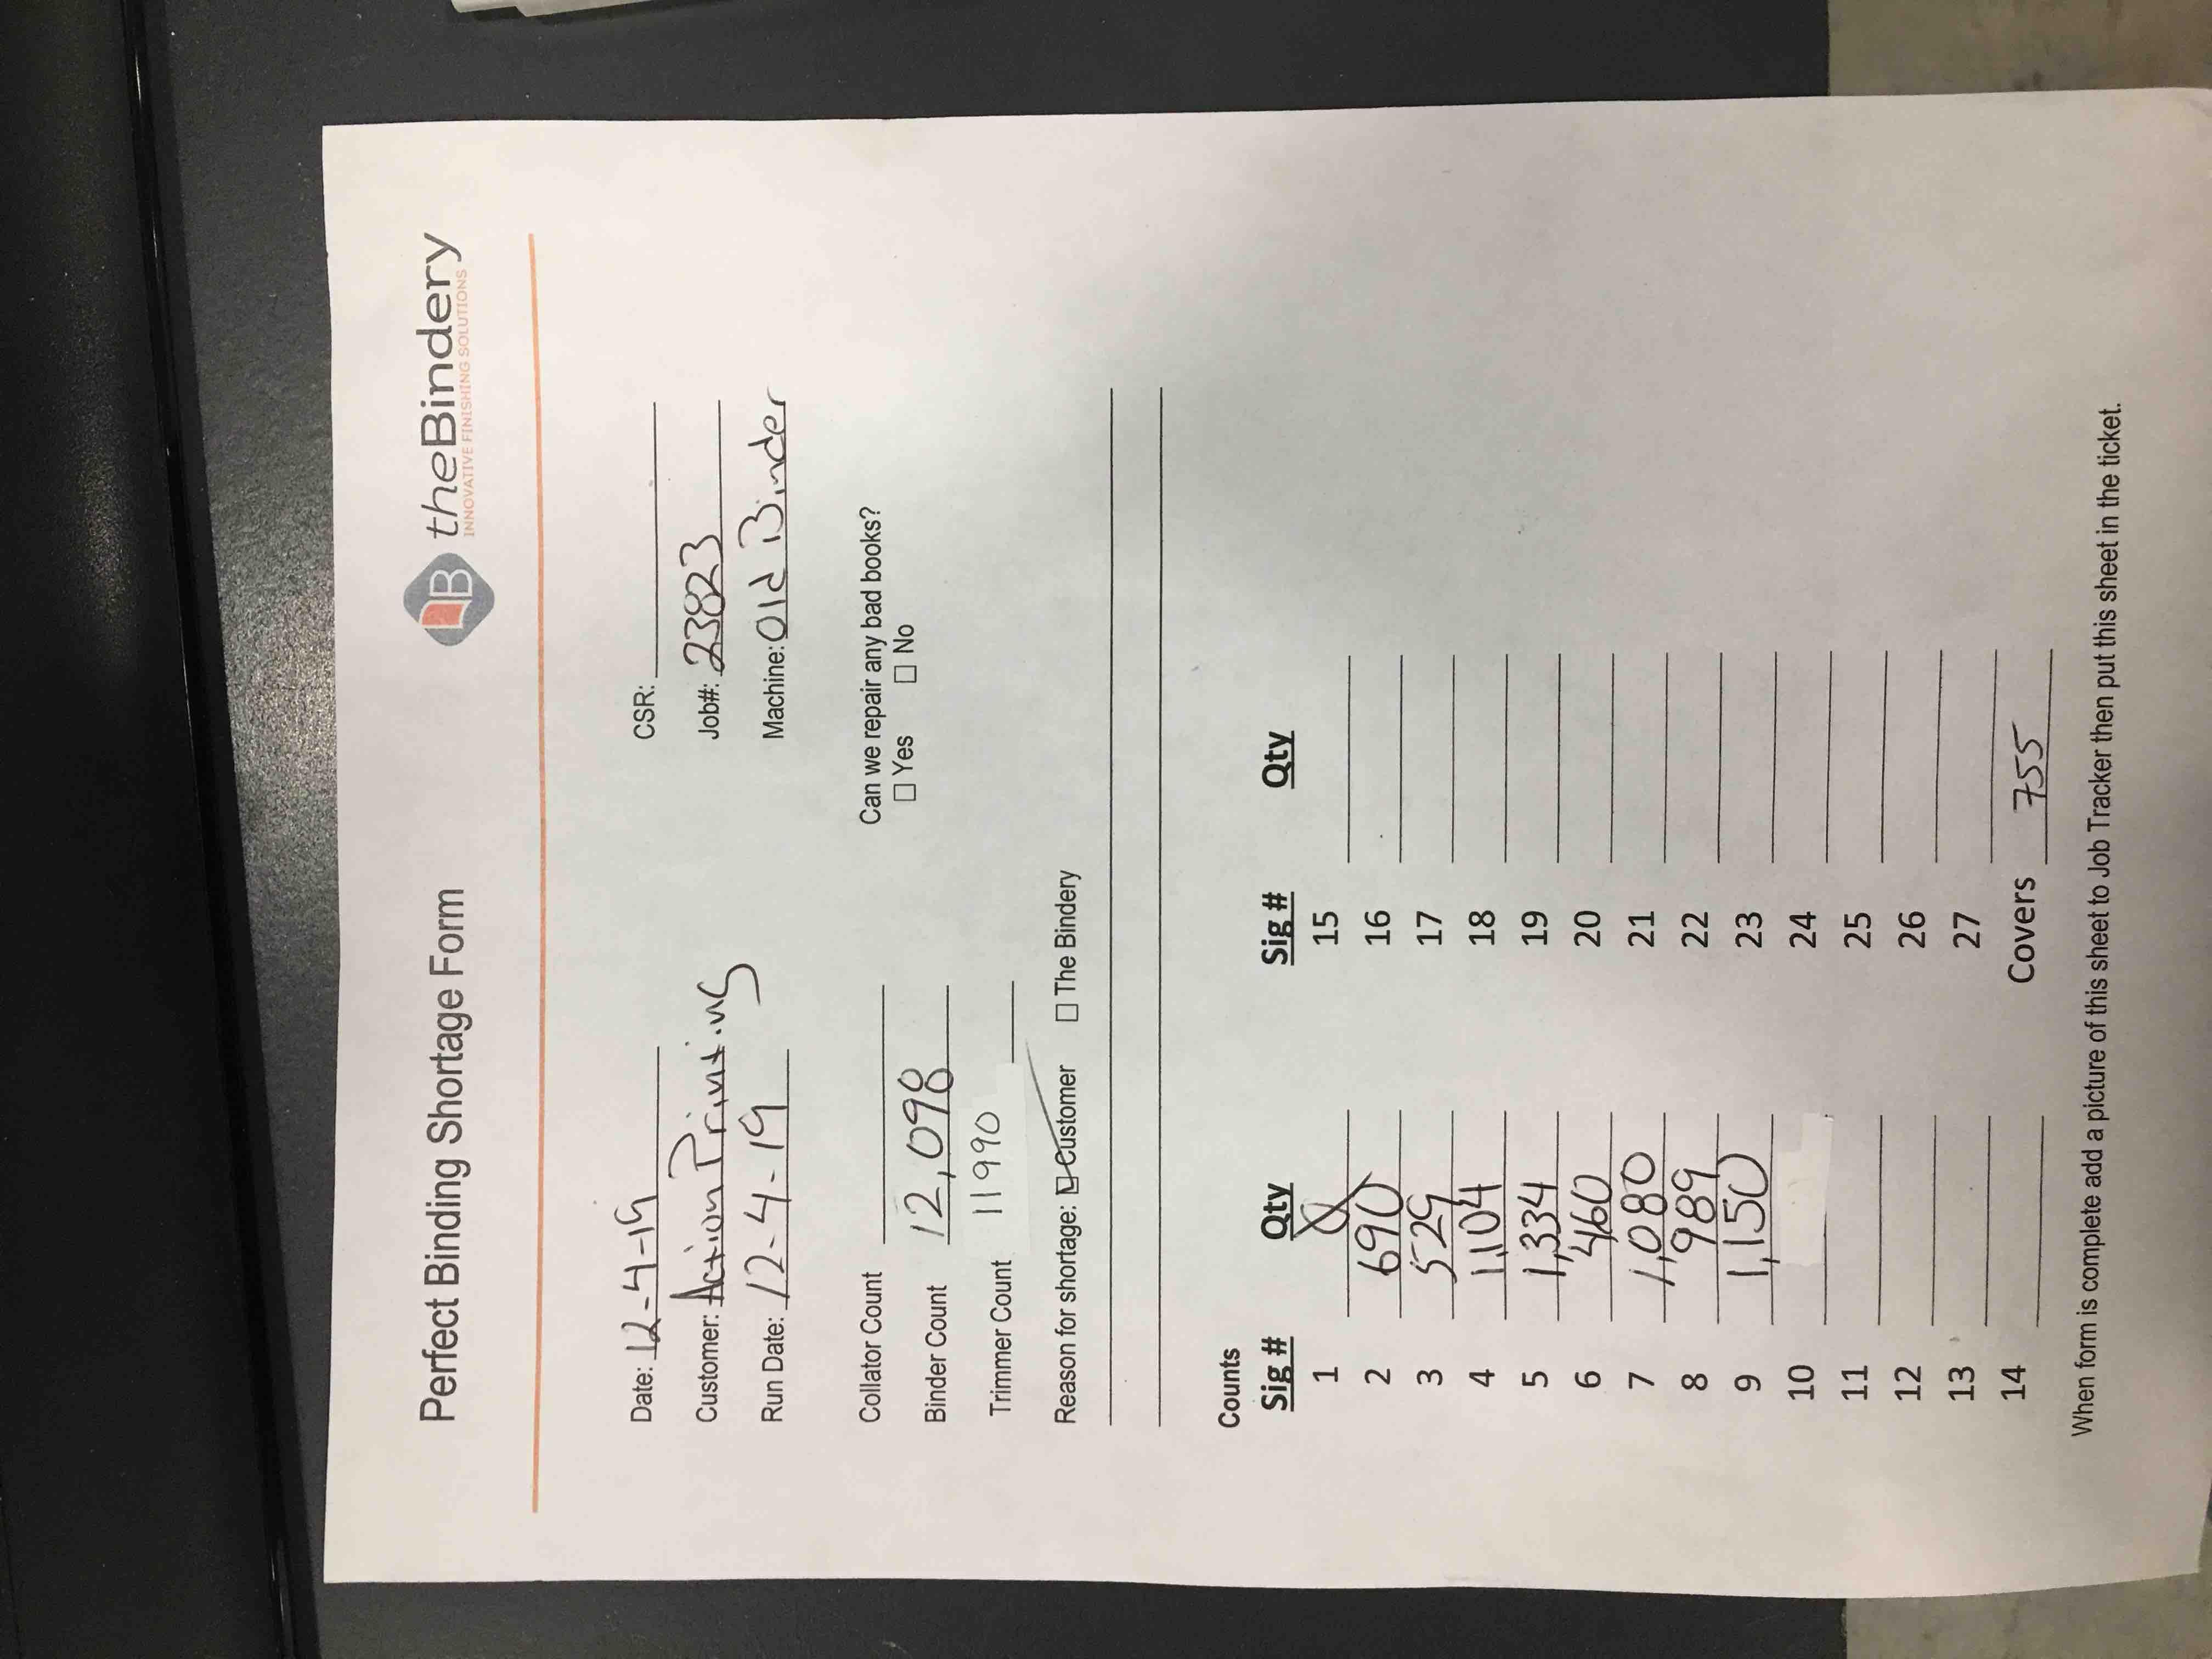 Perfect Binding Shortage Form
B theBindery
INNOVATIVE FINISHING SOLUTIONS
Date: 12-4-19 CSR:
Customer: Action Printing Job#: 23823
Run Date: 12-4-19 Machine: Old Binder
Collator Count Can we repair any bad books?
Binder Count 12,098 ☐ Yes ☐ No
Trimmer Count 11990
Reason for shortage: ☑ Customer ☐ The Bindery
Counts
Sig # Qty Sig # Qty
1 0 15
2 690 16
3 529 17
4 1,104 18
5 1,334 19
6 460 20
7 1,080 21
8 989 22
9 1,150 23
10 24
11 25
12 26
13 27
14 Covers 755
When form is complete add a picture of this sheet to Job Tracker then put this sheet in the ticket.